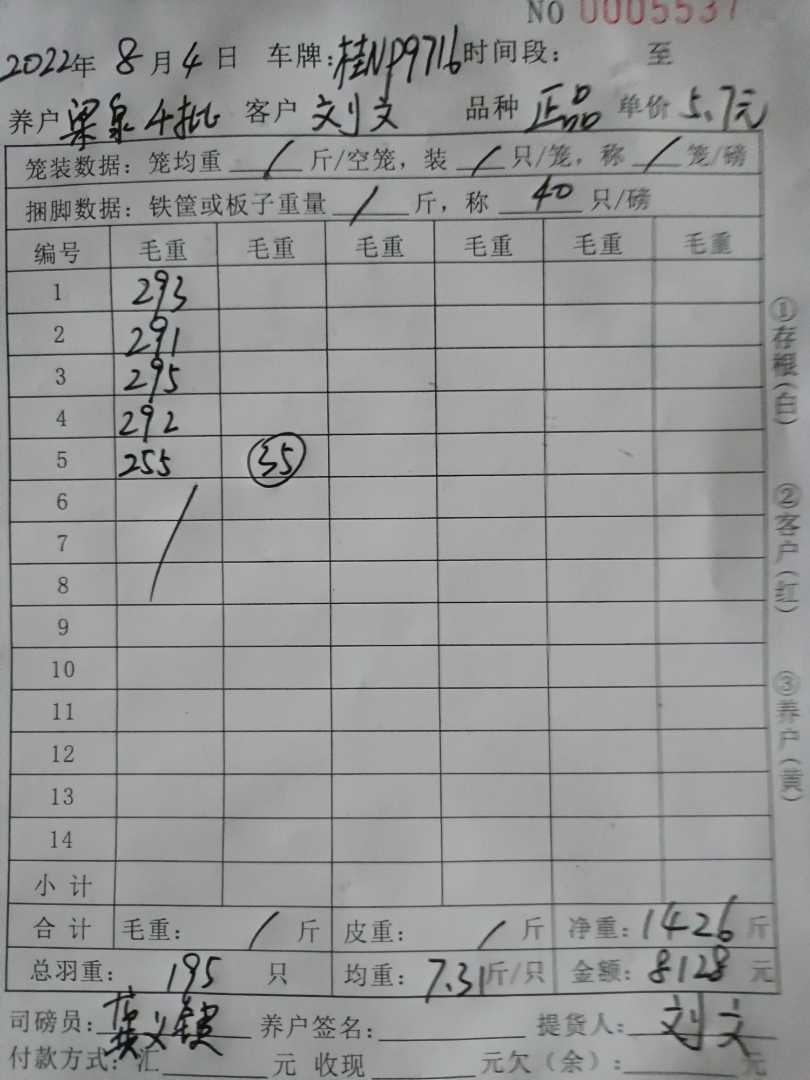 NO 0005537
2022年 8月4日 车牌:桂NP9716 时间段: 至
养户 梁泉4批 客户 刘文 品种 正品 单价 5.7元
笼装数据: 笼均重 / 斤/空笼, 装 / 只/笼, 称 /笼/磅
捆脚数据: 铁筐或板子重量 / 斤, 称 40 只/磅
编号 毛重 毛重 毛重 毛重 毛重 毛重
1 293
2 291
3 295
4 292
5 255 35
6 /
7
8
9
10
11
12
13
14
小计
合计 毛重: / 斤 皮重: / 斤 净重: 1426 斤
总羽重: 195 只 均重: 7.31斤/只 金额: 8128 元
司磅员: 养户签名: 提货人: 刘文
付款方式: 汇 元 收现 元欠(余): 元
①存根(白)
②客户(红)
③养户(黄)